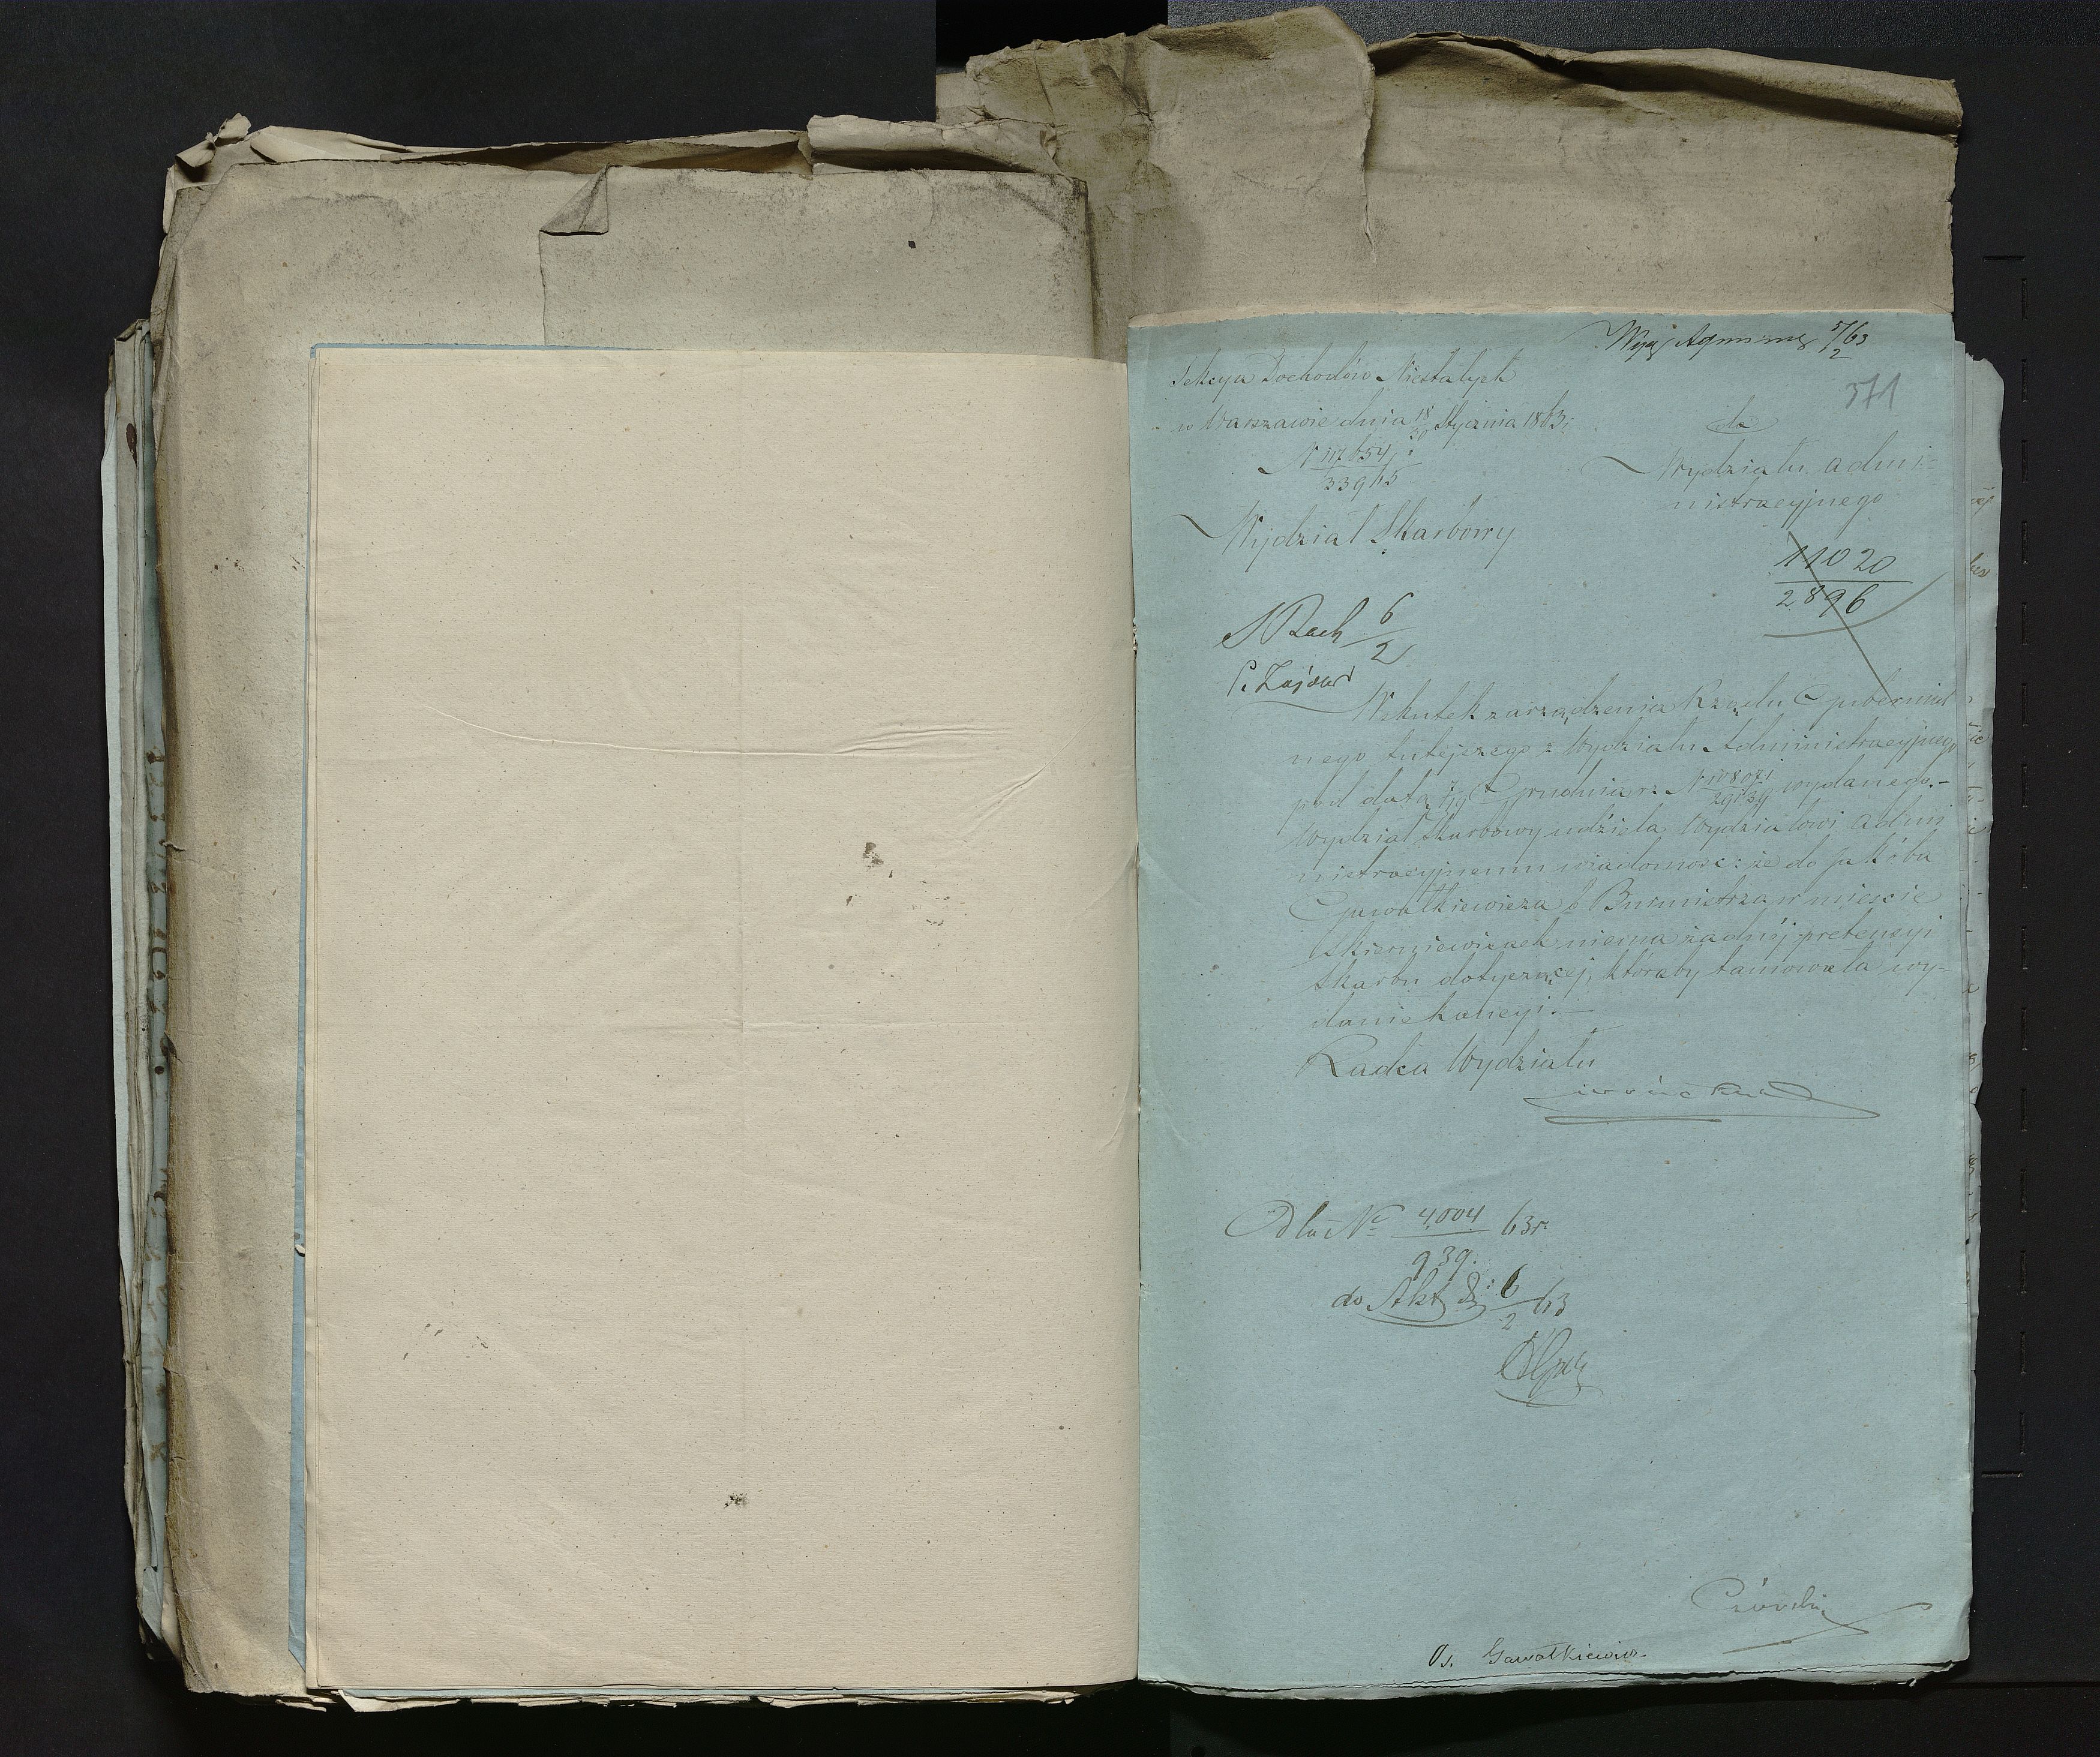 5/2 63
371
Sekcya Dochodów Niestałych
w Warszawie dnia 18/30 Stycznia 1863 r.
N 117654/33965
Wydział Skarbowy
do
Wydziału Admi-
nistracyjnego
11020
2896
6/2
Wskutek zarządzenia Rządu Gubernial
nego tutejszego z Wydziału Administracyjnego
pod datą 7/19 Grudnia r: N wydanego.-
Wydział Skarbowy udziela Wydziałowi Admi
nistracyjnemu wiadomość: że do Jakóba
Gawałkiewicza b Burmistrza w mieście
Skierniewicach niema żadnéj pretensyi
Skarbu dotyczącej, któraby tamowała wy-
danie kaucyi.-
Radca Wydziału
Dla N 4,004/939. 63 r.
do Akt 6/2 63
Os. Gawałkiewicz.